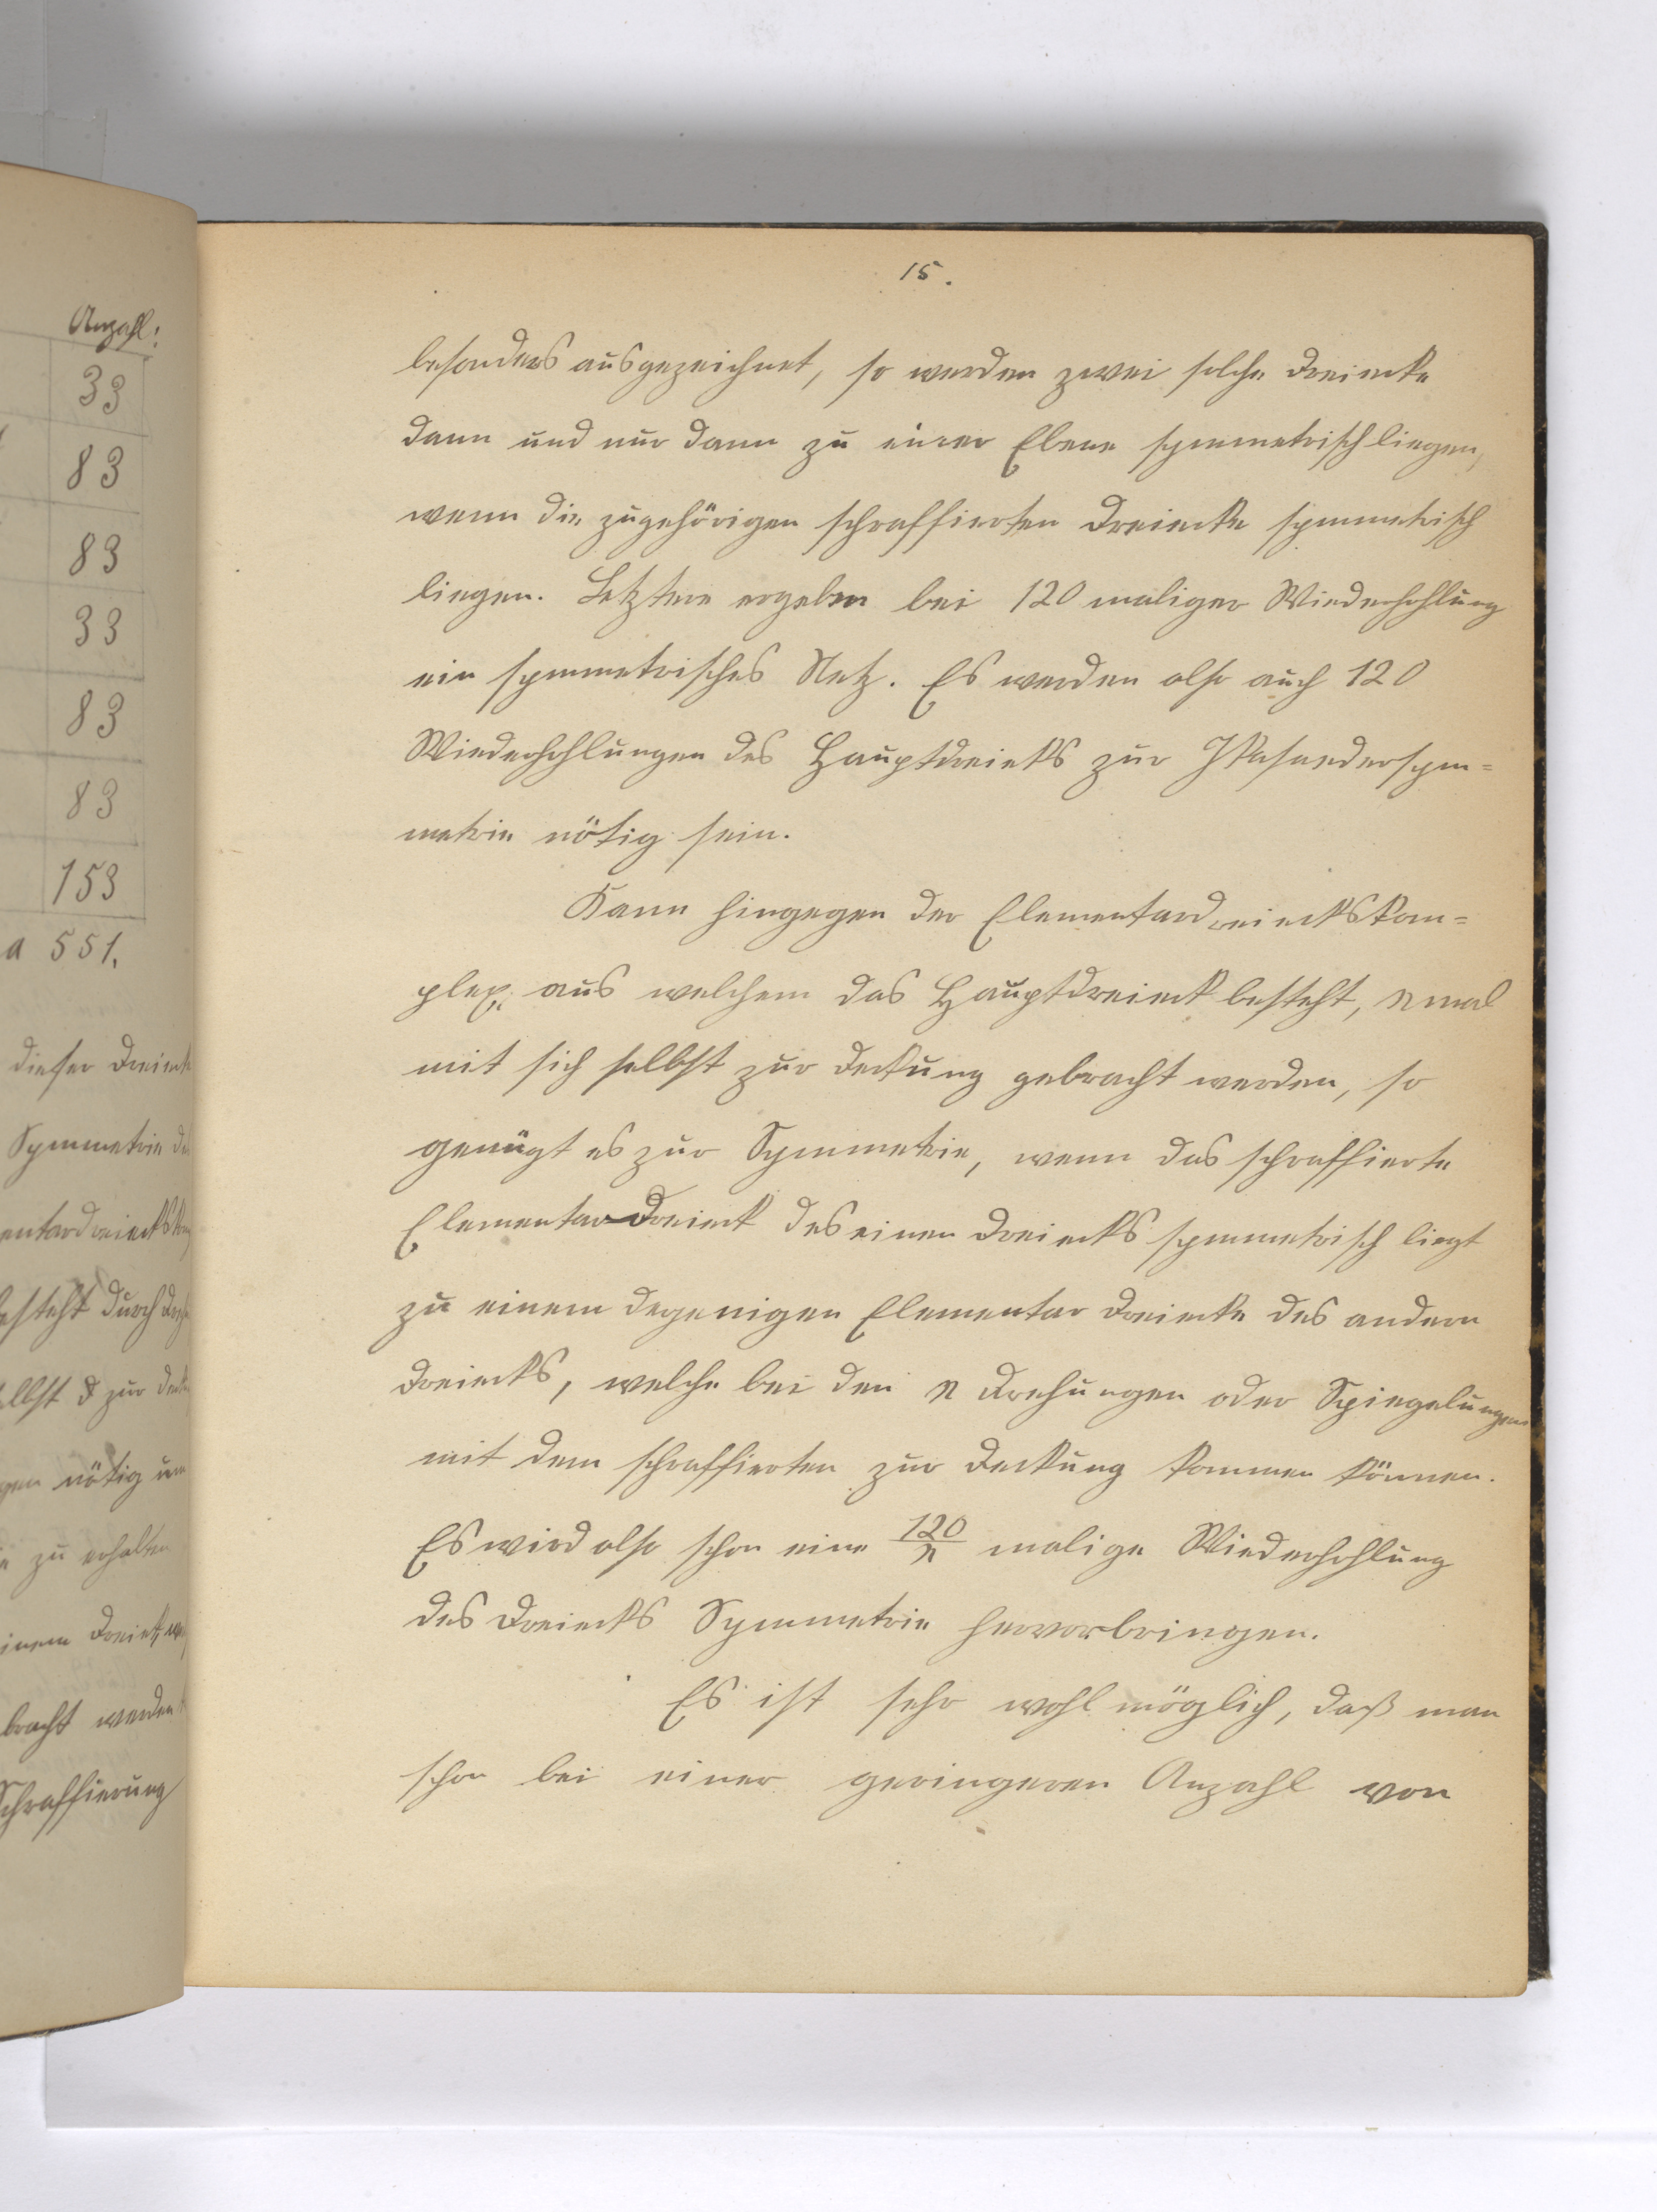 Anzahl:
33
83
83
33
83
83
153
a 551.
dieser Dreieck
Symmetrie
besteht durch
selbst & zur
nötig um
zu erhalten
einem Dreieck,
bracht werden
Schraffierung
15.
besonders ausgezeichnet, so werden zwei solche Dreiecke
dann und nur dann zu einer Ebene symmetrisch liegen,
wenn die zugehörigen schraffierten Dreiecke symmetrisch
liegen. Letztere ergeben bei 120 maliger Wiederhohlung
ein symmetrisches Netz. Es werden also auch 120
Wiederhohlungen des Hauptdreiecks zur Ikosaedersym=
metrie nötig sein.
Kann hingegen der Elementardreieckskom=
plex, aus welchem das Hauptdreieck besteht, n mal
mit sich selbst zur Deckung gebracht werden, so
genügt es zur Symmetrie, wenn das schraffierte
Elementar-Dreieck des einen Dreiecks symmetrisch liegt
zu einem degenigen Elementar Dreiecke des andern
Dreiecks, welche bei den n Drehungen oder Spiegelungen
mit dem schraffierten zur Deckung kommen können.
Es wird also schon eine 120/n malige Wiederhohlung
des Dreiecks Symmetrie hervorbringen.
Es ist sehr wohl möglich, daß man
schon bei einer geringeren Anzahl von